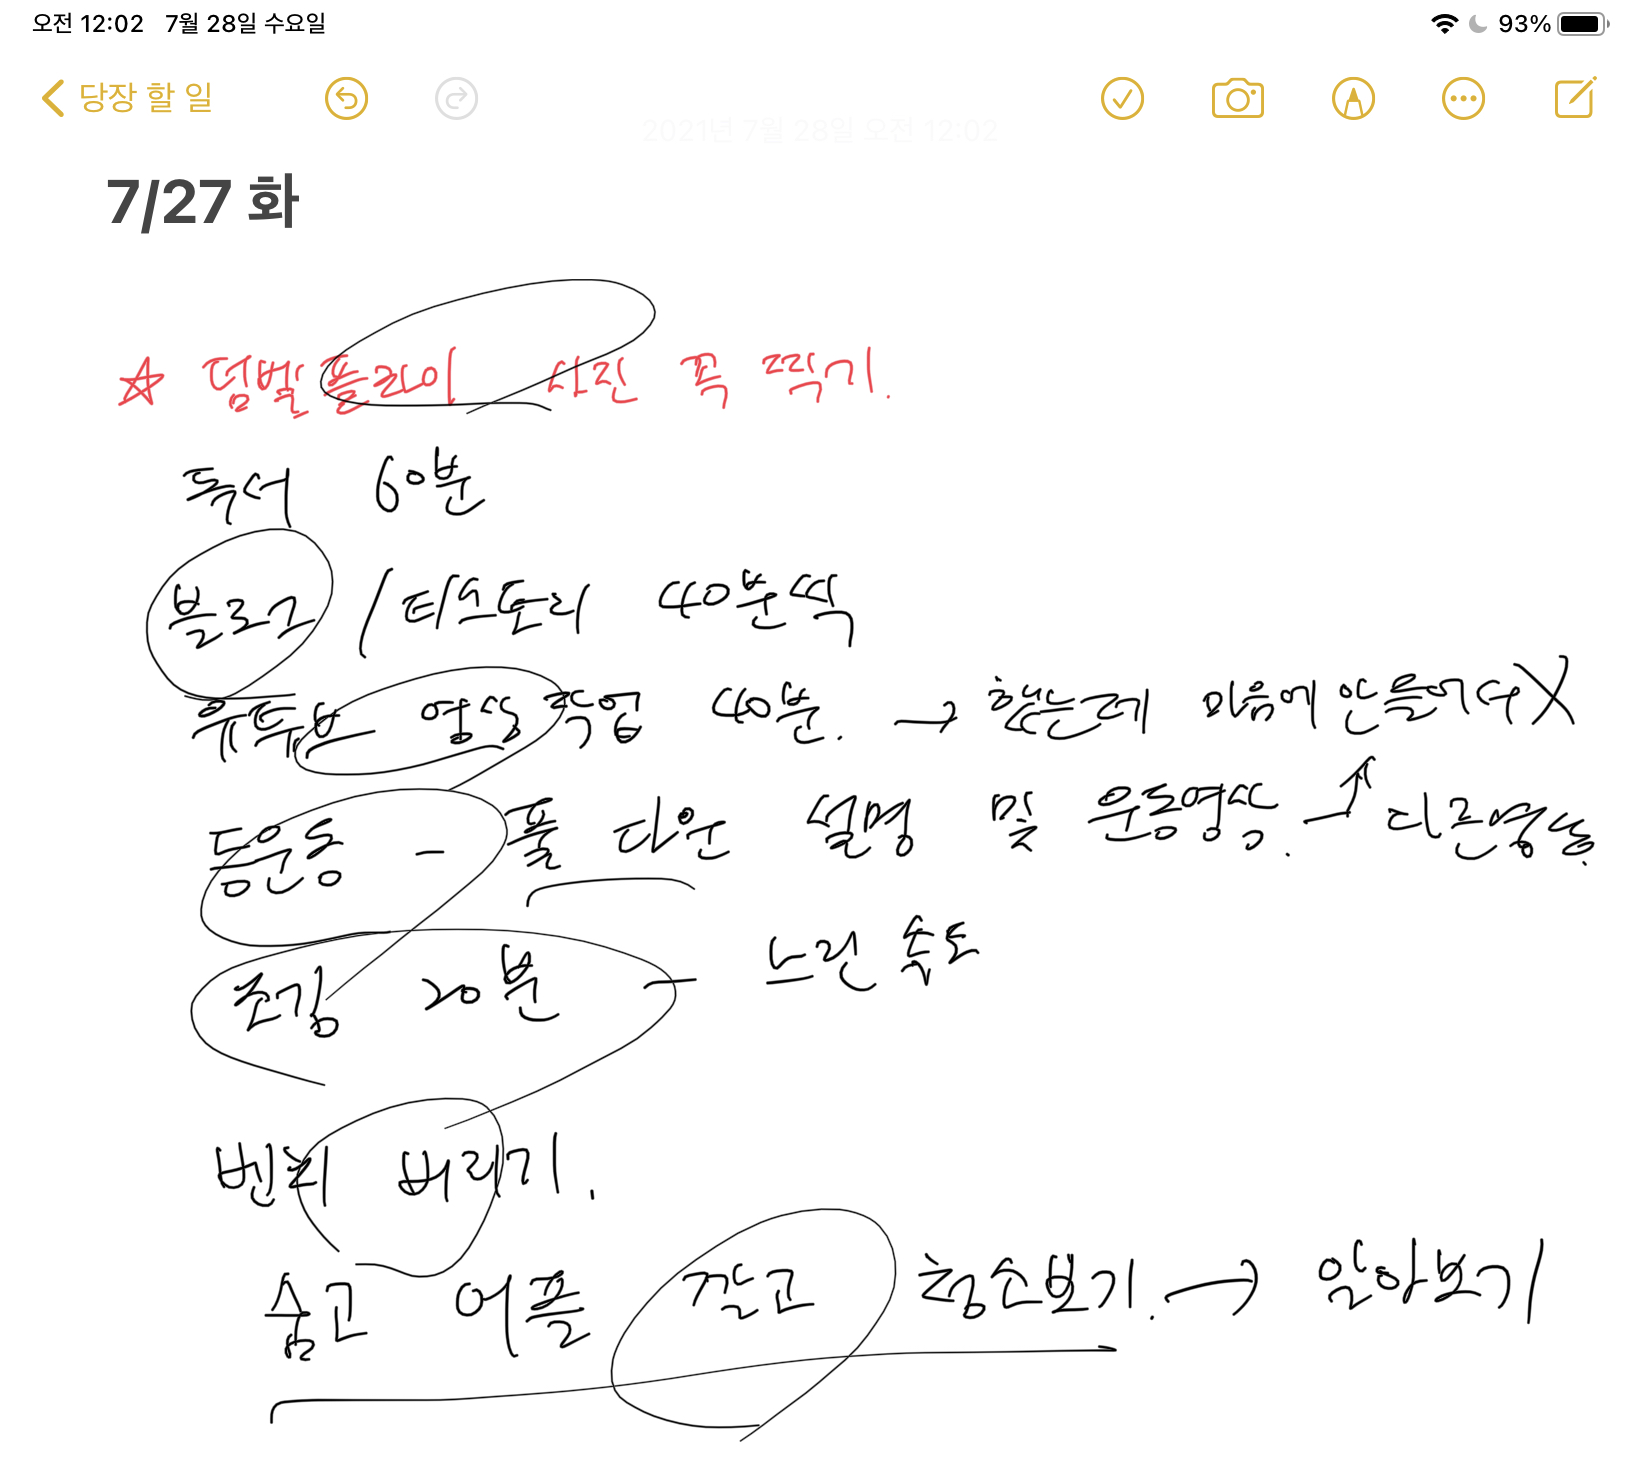 오전 12:02 7월 28일 수요일 93%
당장 할 일
2021년 7월 28일 오전 12:02
7/27 화
☆ 덤벨 플라이 사진 꼭 찍기.
독서 60분
블로그 / 티스토리 40분씩
유투브 영상 작업 40분. → 했는데 마음에 안들어서 X
등운동 - 풀 다운 설명 및 운동영상. → 다른영상.
조깅 20분 - 느린 속도
벤치 버리기.
숨고 어플 깔고 청소보기. → 알아보기